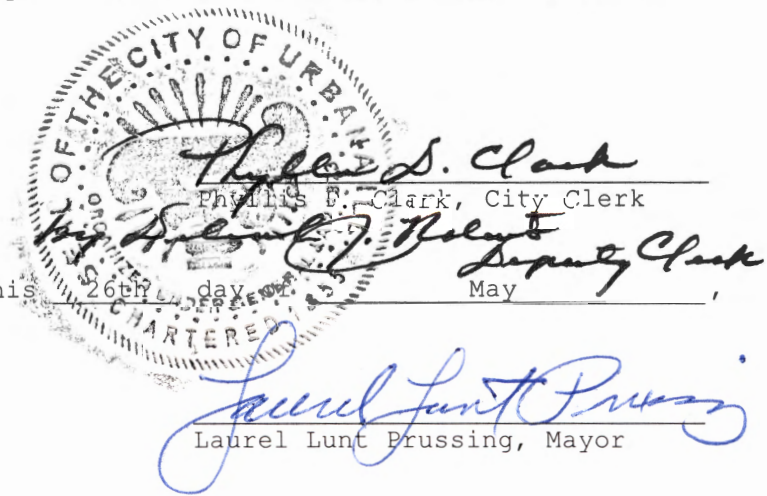 SEAL OF THE CITY OF URBANA
CHARTERED 1855
Phyllis D. Clark
Phyllis D. Clark, City Clerk
by Deputy Clerk
this 26th day of May,
Laurel Lunt Prussing
Laurel Lunt Prussing, Mayor